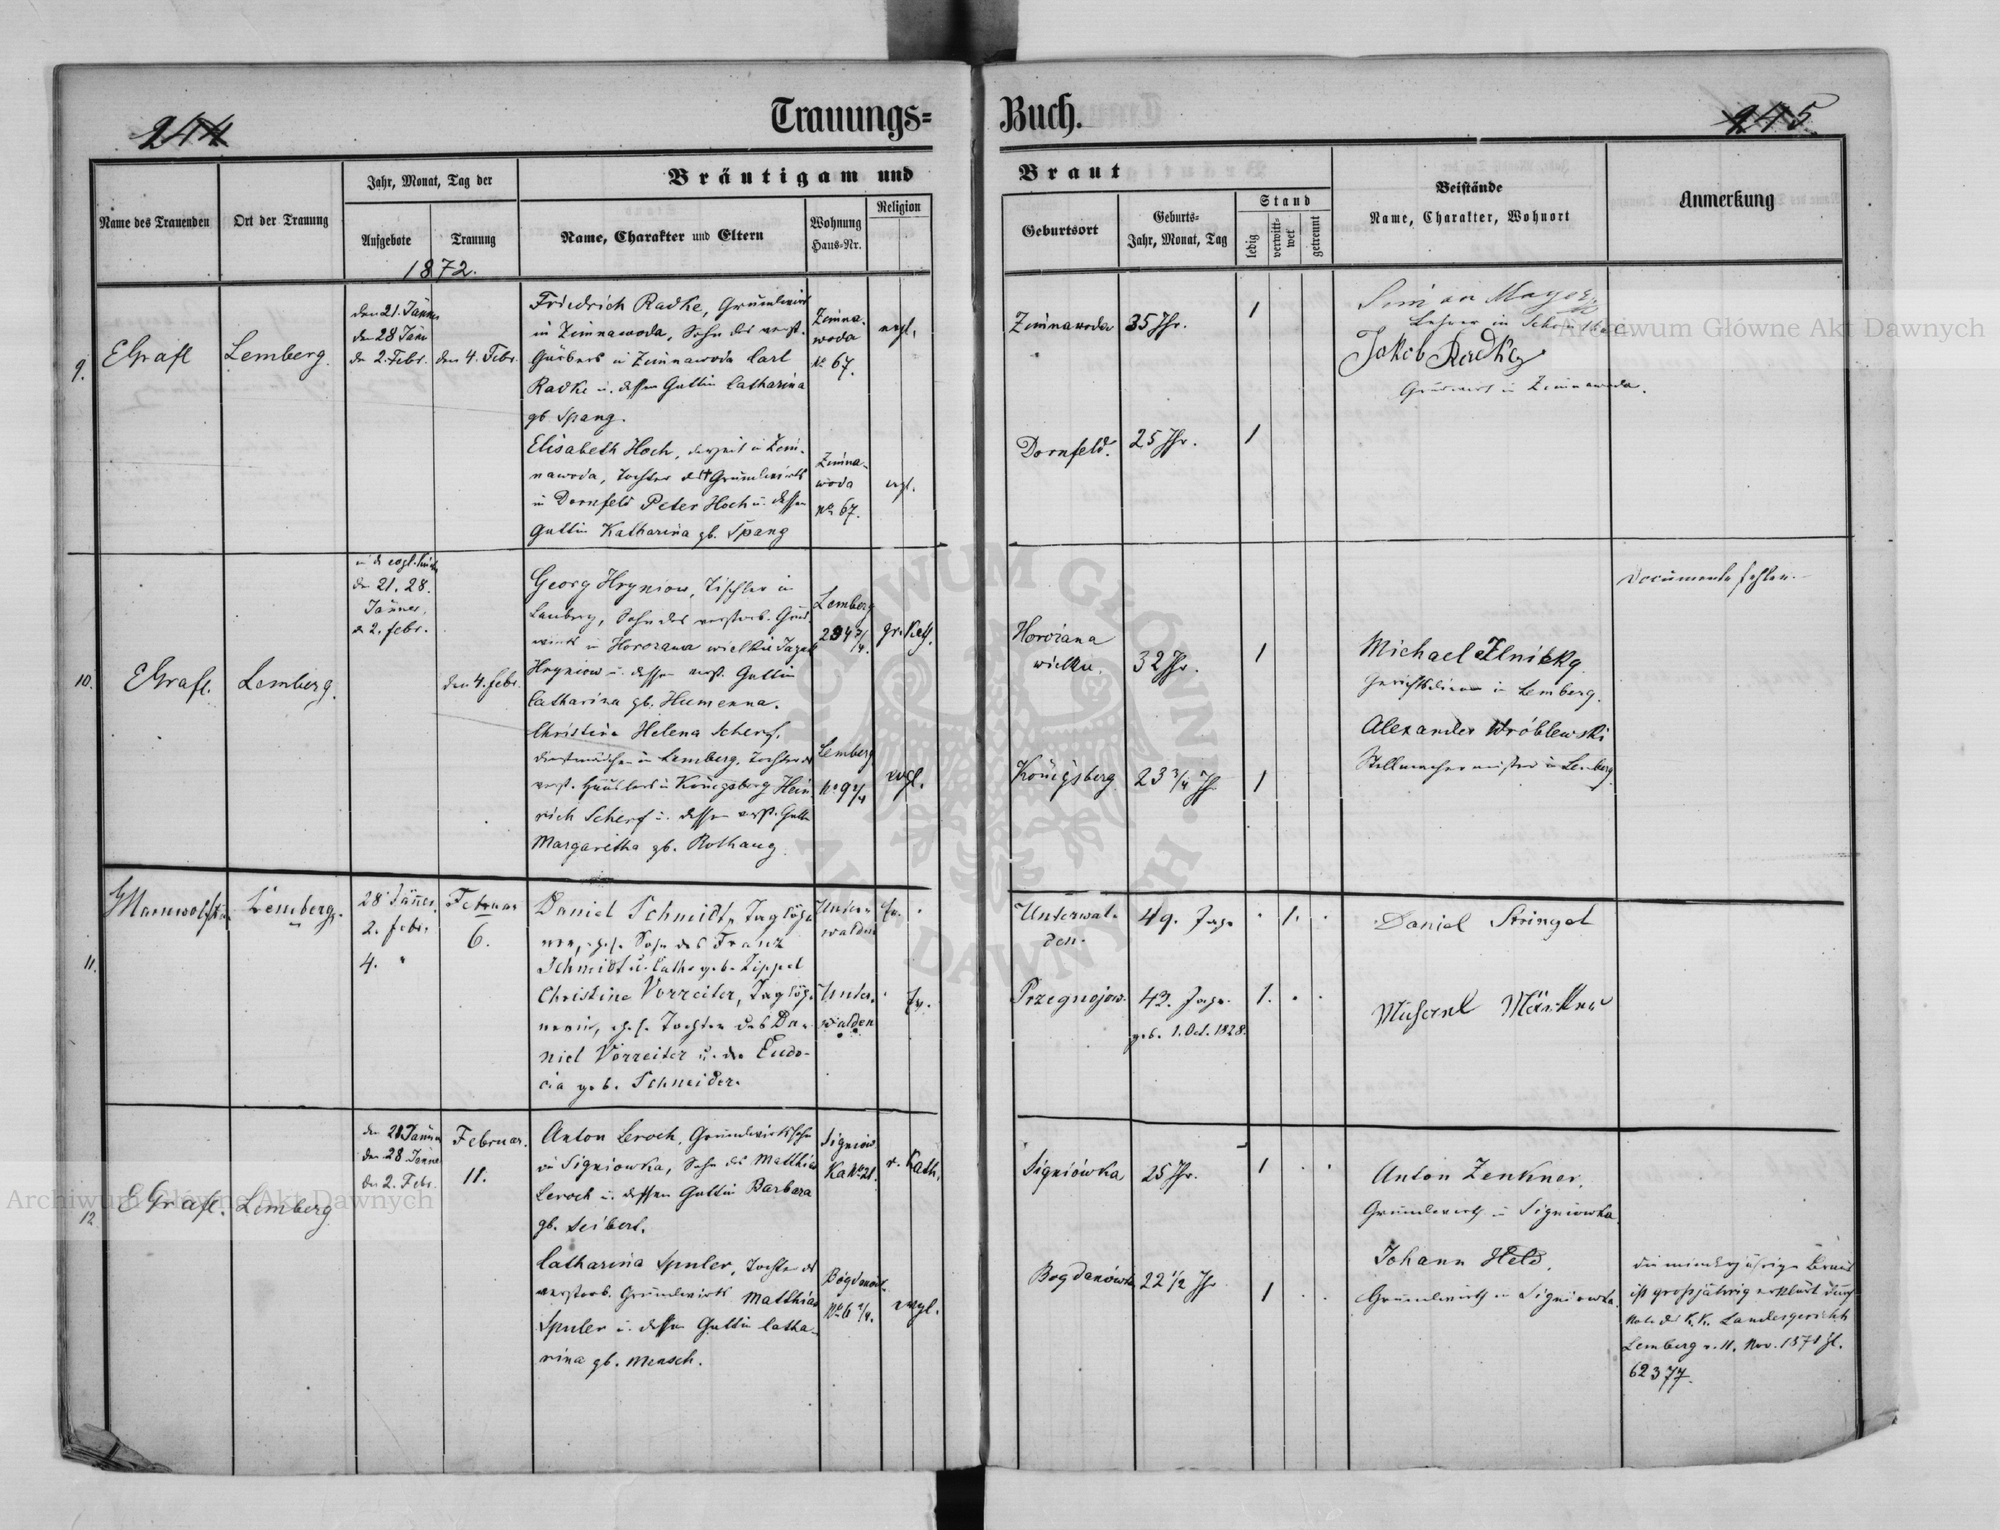 244
Trauungs=
Buch.
245
Name des Trauenden
Ort der Trauung
Jahr, Monat, Tag der
Aufgebote
Trauung
1872.
Bräutigam und
Name, Charakter und Eltern
Wohnung
Haus-Nr.
Religion
Braut
Geburtsort
Geburts-
Jahr, Monat, Tag
Stand
ledig
verwitt-
wet
getrennt
Beistände
Name, Charakter, Wohnort
Anmerkung
9.
EGrafl
Lemberg.
den 21. Jänner
den 28 Jänn
den 2. Febr.
den 4. Febr.
Friedrich Radke, Grundwirt
in Zimnawoda, Sohn des verst.
in Zimnawoda Carl
Radke u. dessen Gattin Catharina
gb Spang.
Zimna-
woda
No 67.
evgl.
Zimnawoda
35 Jhr.
1
Lehrer in
Jakob Radke
Grundwirt in Zimnawoda.
Elisabeth Hoch, derzeit in Zim-
nawoda, Tochter des Grundwirts
in Dornfeld Peter Hoch u. dessen
Gattin Katharina gb. Spang
Zimna-
woda
No 67.
evgl.
Dornfeld.
25 Jhr.
1
10.
EGrafl.
Lemberg.
in d. evgl. Kirche
den 21. 28.
Jänner,
d 2. febr.
den 4. febr.
Georg Hryniow, Tischler in
Lemberg, Sohn des verstorb. Grund
wirts in Horozana wielkie
Hryniow u. dessen verst. Gattin
Catharina gb. Humenna.
Lemberg
294 2/4.
gr. Kath.
Horozana
wielka.
32 Jhr.
1
Michael Ilnitzky
Gerichtsdiener in Lemberg.
Alexander Wróblewski
Stellmachermeister in Lemberg.
Documente fehlen.
Christina Helena Scherf,
Dienstmädchen in Lemberg, Tochter des
verst. Häuslers in Königsberg Hein
rich Scherf u. dessen verst. Gattin
Margaritha gb. Rothaug.
Lemberg
No 9 2/4
evgl.
Königsberg
23 3/4 Jhr
1
11.
Lemberg.
28 Jänner,
2. febr.
4. "
Februar
6.
Daniel Schmidt, Taglöh
ner, ehel. Sohn des Franz
Schmidt u. Cath. geb. Zippel
Unter-
walden
Ev.
Unterwal-
den.
49. Jahr
1.
Daniel Stringel
Christine Vorreiter, Taglöh-
nerin, ehel. Tochter des Da-
niel Vorreiter u. der Eudo-
cia geb. Schneider.
Unter-
walden
Ev.
Przegnojow.
43. Jahr.
geb. 1. Oct. 1828.
1.
12.
EGrafl.
Lemberg
den 21 Jänner
den 28 Jänner
den 2. Febr.
Februar.
11.
Anton Leroch, Grundwirtssohn
in Signiowka, Sohn des Matthias
Leroch u. dessen Gattin Barbara
gb. Seibert.
Signiow
ka No 21.
r. Kath.
Signiówka
25 Jhr.
1
Anton Zenkner,
Grundwirth in Signiowka.
Catharina Spuler, Tochter des
verstorb. Grundwirts Matthias
Spuler u. dessen Gattin Catha-
rina gb. Mensch.
Bogdanow
No 6 2/4.
evgl.
Bogdanówka
22 1/2 Jhr
1
Johann Held,
Grundwirth in Signiowka.
die minderjährige Braut
ist großjährig erklärt durch
Note des K. K. Landesgerichts
Lemberg v. 11. Nov. 1871 Zl.
62377.
Archiwum Główne Akt Dawnych
Archiwum Główne Akt Dawnych
ARCHIWUM GŁÓWNE AKT DAWNYCH